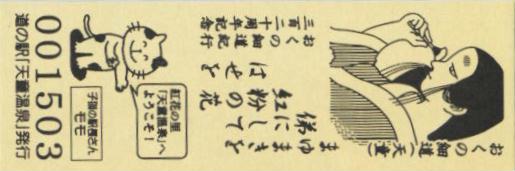 おくの細道(天童)
おくの細道紀行
三百二十周年記念
まゆはきを
俤にして
紅粉の花
はせを
紅花の里
「天童温泉」へ
ようこそ!
子猫の駅長さん
モモ
001503
道の駅「天童温泉」発行